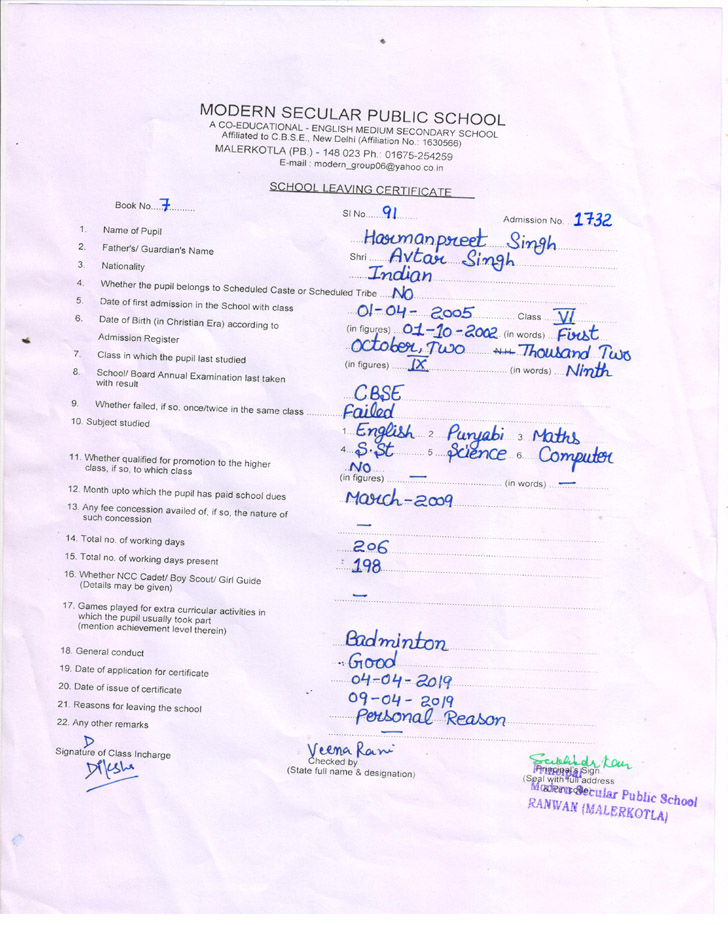 MODERN SECULAR PUBLIC SCHOOL
A CO-EDUCATIONAL - ENGLISH MEDIUM SECONDARY SCHOOL
Affiliated to C.B.S.E., New Delhi (Affiliation No.: 1630566)
MALERKOTLA (PB.) - 148 023 Ph.: 01675-254259
E-mail : modern_group06@yahoo.co.in
SCHOOL LEAVING CERTIFICATE
Book No. 7 Sl No. 91 Admission No. 1732
1. Name of Pupil Harmanpreet Singh
2. Father's/ Guardian's Name Shri Avtar Singh
3. Nationality Indian
4. Whether the pupil belongs to Scheduled Caste or Scheduled Tribe NO
5. Date of first admission in the School with class 01-04-2005 Class VI
6. Date of Birth (in Christian Era) according to (in figures) 01-10-2002 (in words) First
Admission Register October, Two Thousand Two
7. Class in which the pupil last studied (in figures) IX (in words) Ninth
8. School/ Board Annual Examination last taken
with result CBSE
9. Whether failed, if so, once/twice in the same class Failed
10. Subject studied 1 English 2 Punjabi 3 Maths
4 S.St 5 Science 6 Computer
11. Whether qualified for promotion to the higher NO
class, if so, to which class (in figures) — (in words) —
12. Month upto which the pupil has paid school dues March-2009
13. Any fee concession availed of, if so, the nature of
such concession —
14. Total no. of working days 206
15. Total no. of working days present 198
16. Whether NCC Cadet/ Boy Scout/ Girl Guide
(Details may be given) —
17. Games played for extra curricular activities in
which the pupil usually took part
(mention achievement level therein) Badminton
18. General conduct Good
19. Date of application for certificate 04-04-2019
20. Date of issue of certificate 09-04-2019
21. Reasons for leaving the school Personal Reason
22. Any other remarks —
Signature of Class Incharge
Veena Rani
Checked by
(State full name & designation)
Principal's Sign
(Seal with full address
Principal
Modern Secular Public School
RANWAN (MALERKOTLA)